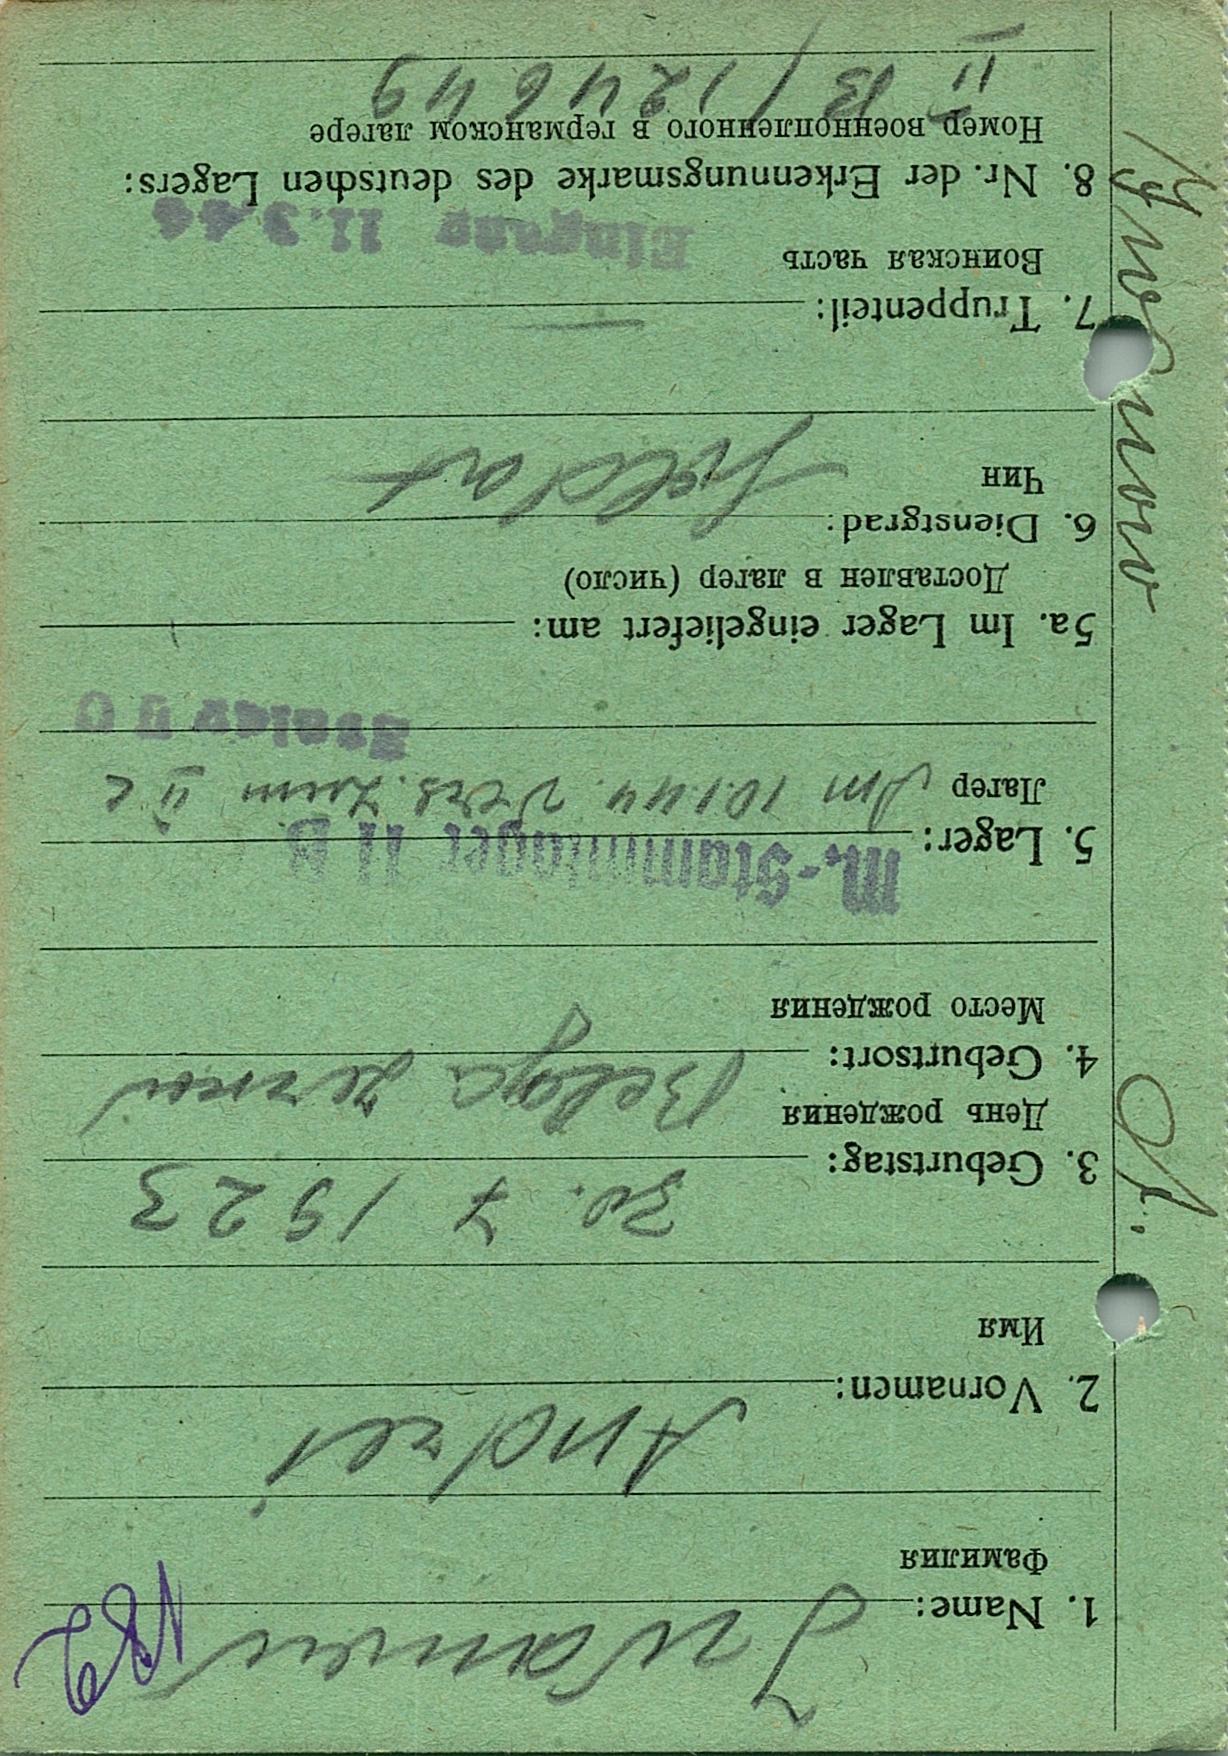 1. Name: Iwanow
Фамилия
2. Vornamen: Andrei
Имя
3. Geburtstag: 30. 7 1923
День рождения
4. Geburtsort:
Место рождения
5. Lager: M.-Stammlager II B
Лагер Am 10.1.44 vers. zum II C
Stalag II C
5a. Im Lager eingeliefert am:
Доставлен в лагер (число)
6. Dienstgrad: Soldat
Чин
7. Truppenteil: —
Воинская часть
Eingang 11.3.44
8. Nr. der Erkennungsmarke des deutschen Lagers:
Номер военнопленного в германском лагере
II B / 124649